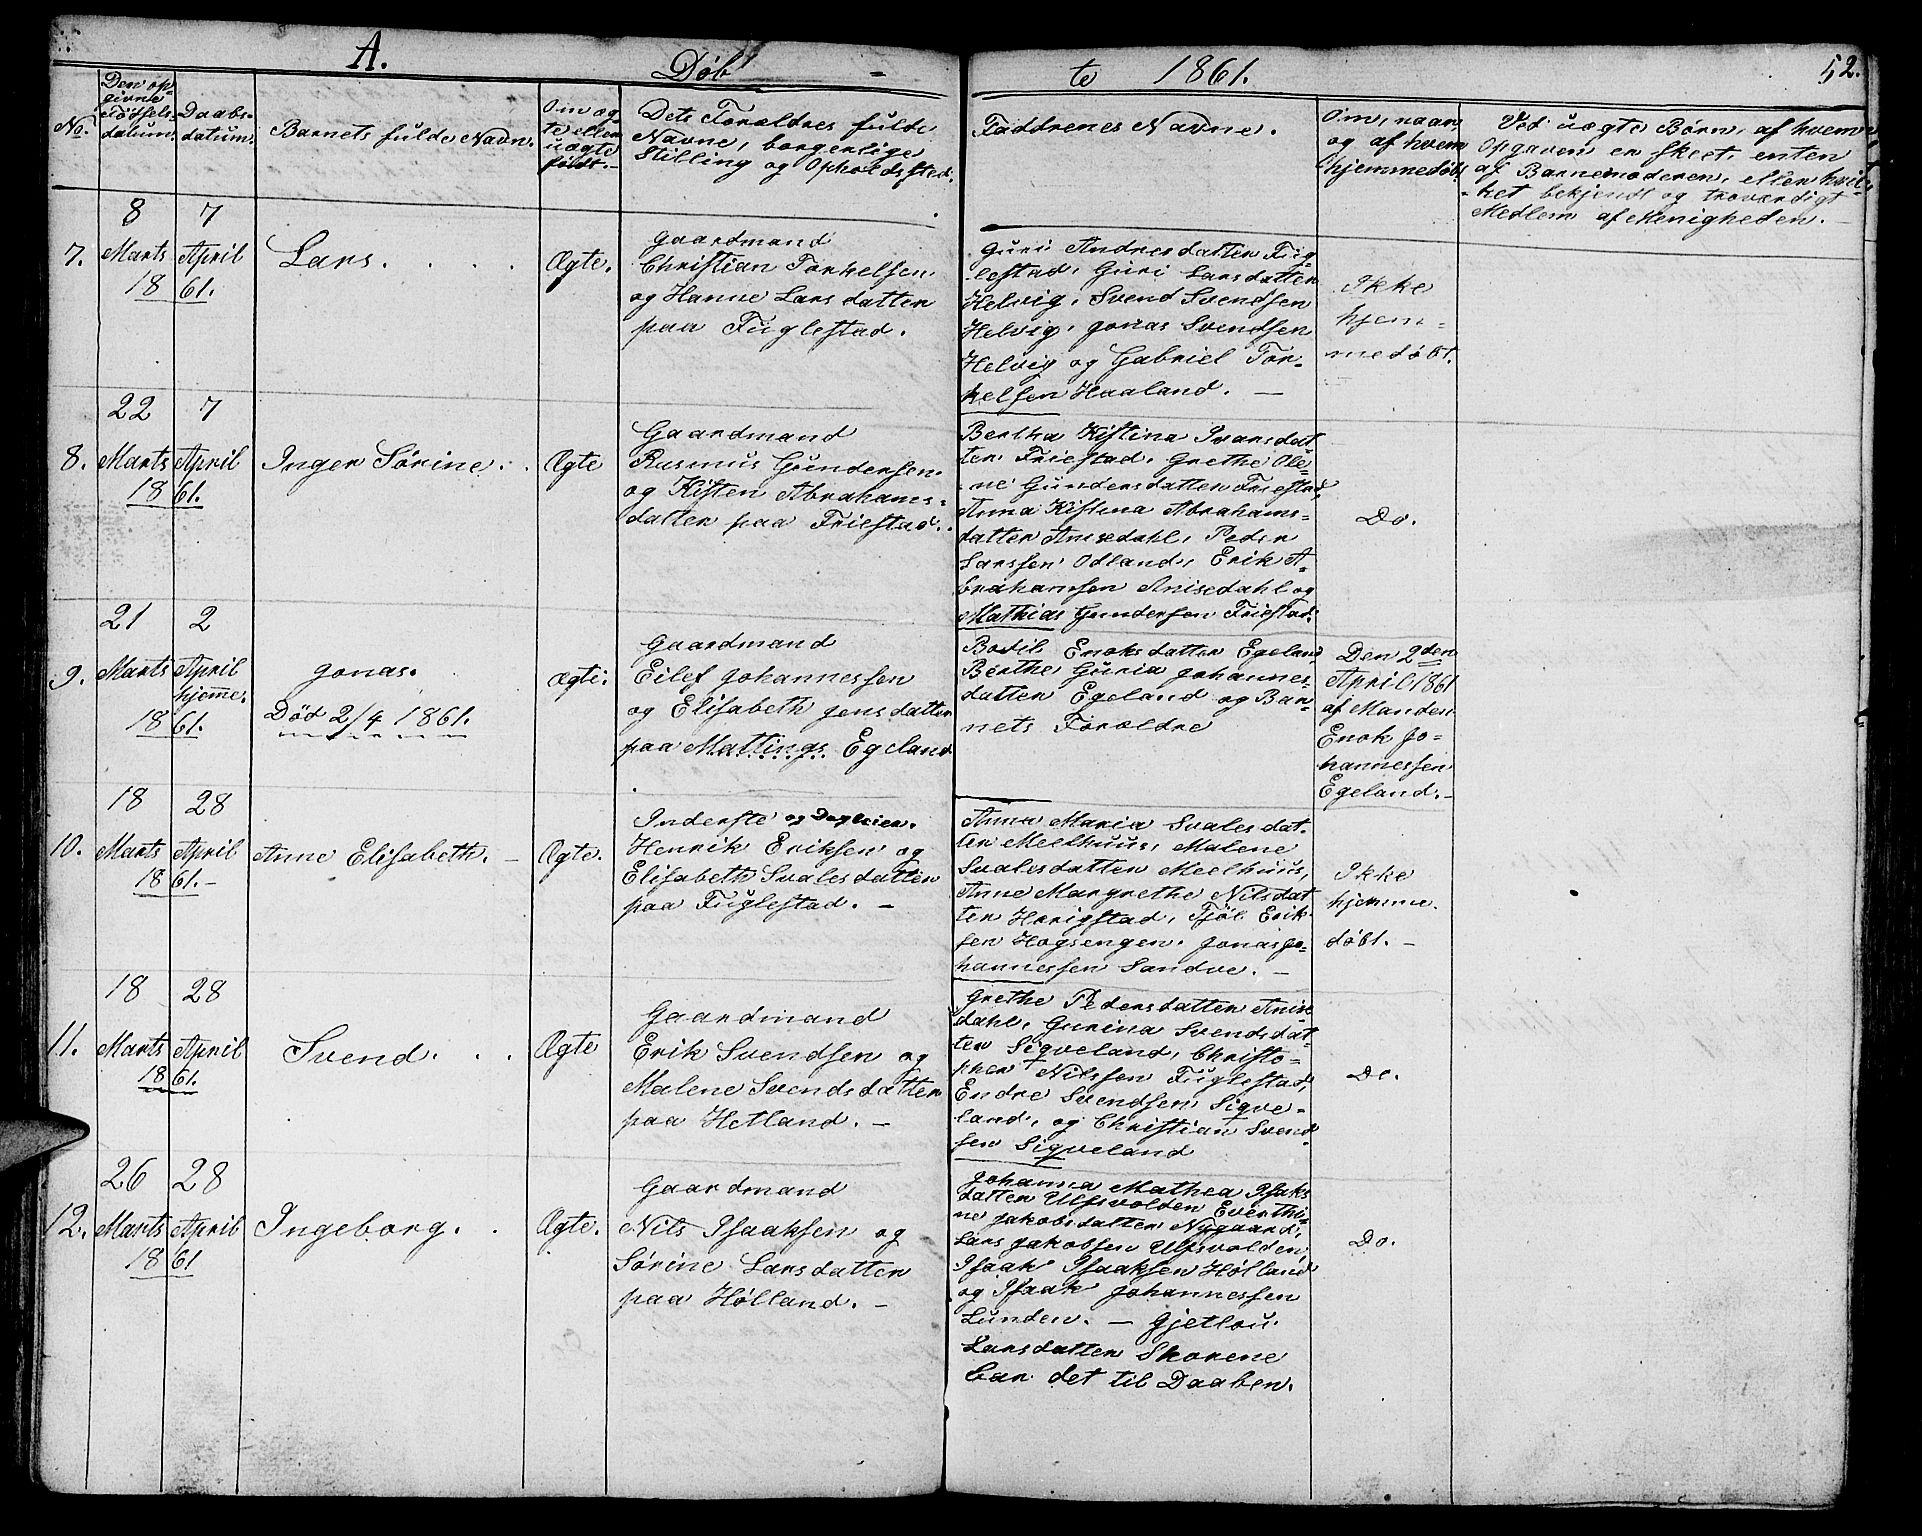 A. Døb- te 1861. 52.
No.
Den op-
givne
Fødsels-
datum.
Daabs-
datum.
Barnets fulde Navn.
Om æg-
te eller
uægte
født.-
Dets Forældres fulde
Navne, borgerlige
Stilling og Opholdssted.
Faddrenes Navne.
Om, naar,
og af hvem
hjemmedøbt.
Ved uægte Børn, af hvem
Opgaven er skeet, enten
af Barnemoderen, eller hvil-
ket bekjendt og troværdigt
Medlem af Menigheden. -
7.
8
Marts
7
April
1861.
Lars. . . .
Ægte.
Gaardmand
Christian Torkelsen
og Hanne Larsdatter
paa Fuglestad.
Guri Andresdatter Fug-
lestad, Guri Larsdatter
Helvig, Svend Svendsen
Helvig, Jonas Svendsen
Helvig og Gabriel Tor-
kelsen Haaland. -
Ikke
hjem-
medøbt.
8.
22
Marts
7
April
1861.
Inger Sørine. . .
Ægte
Gaardmand
Rasmus Gundersen
og Kisten Abrahams-
datter paa Friestad. .
Bertha Kistina Ivarsdat-
ter Friestad, Grethe Ole-
ne Gundersdatter Friestad,
Anna Kistina Abrahams-
datter Anisedahl, Peder
Larssen Odland, Erik A-
brahamsen Anisedahl og
Mathias Gundersen Friestad.
Do.
9.
21
Marts
2
April
hjemme.
1861.
Jonas.
Død 2/4 1861.
Ægte.
Gaardmand
Eilef Johannessen
og Elisabeth Jensdatter
paa Mattings Egeland
Bodil Enoksdatter Egeland,
Berthe Guria Johannes-
datter Egeland og Bar-
nets Forældre
Den 2den
April 1861
af Manden
Enok Jo-
hannessen
Egeland. -
10.
18
Marts
28
April
1861. -
Anne Elisabeth. -
Ægte.
Inderste og Dagleier.
Henrik Eriksen og
Elisabeth Svalesdatter
paa Fuglestad. -
Anna Maria Svalesdat-
ter Meelhuus, Malene
Svalesdatter Meelhuus,
Anne Margrethe Nilsdat-
ter Horigstad, Tjøl Erik-
sen Hogsengen, Jonas Jo-
hannessen Sandve. -
Ikke
hjemme.
døbt. -
11.
18
Marts
28
April
1861.
Svend. . .
Ægte
Gaardmand
Erik Svendsen og
Malene Svendsdatter
paa Hetland. -
Grethe Pedersdatter Anise-
dahl, Gurina Svendsdat-
ter Siqveland, Christo-
pher Nilssen Fuglestad,
Endre Svendsen Siqve-
land, og Christian Svend-
sen Siqveland
Do.
12.
26
Marts
28
April
1861
Ingeborg. .
Ægte.
Gaardmand
Nils Isaaksen og
Sørine Larsdatter
paa Hølland. -
Johanna Mathea Isaks
datter Ulfsvolden Everthi-
ne Jakobsdatter Nygaard,
Lars Jakobsen Ulfsvolden,
Isaak Isaaksen Hølland
og Isaak Johannessen
Lunden. - Gjetlou
Larsdatter Skorene
bar det til Daaben.
Do.